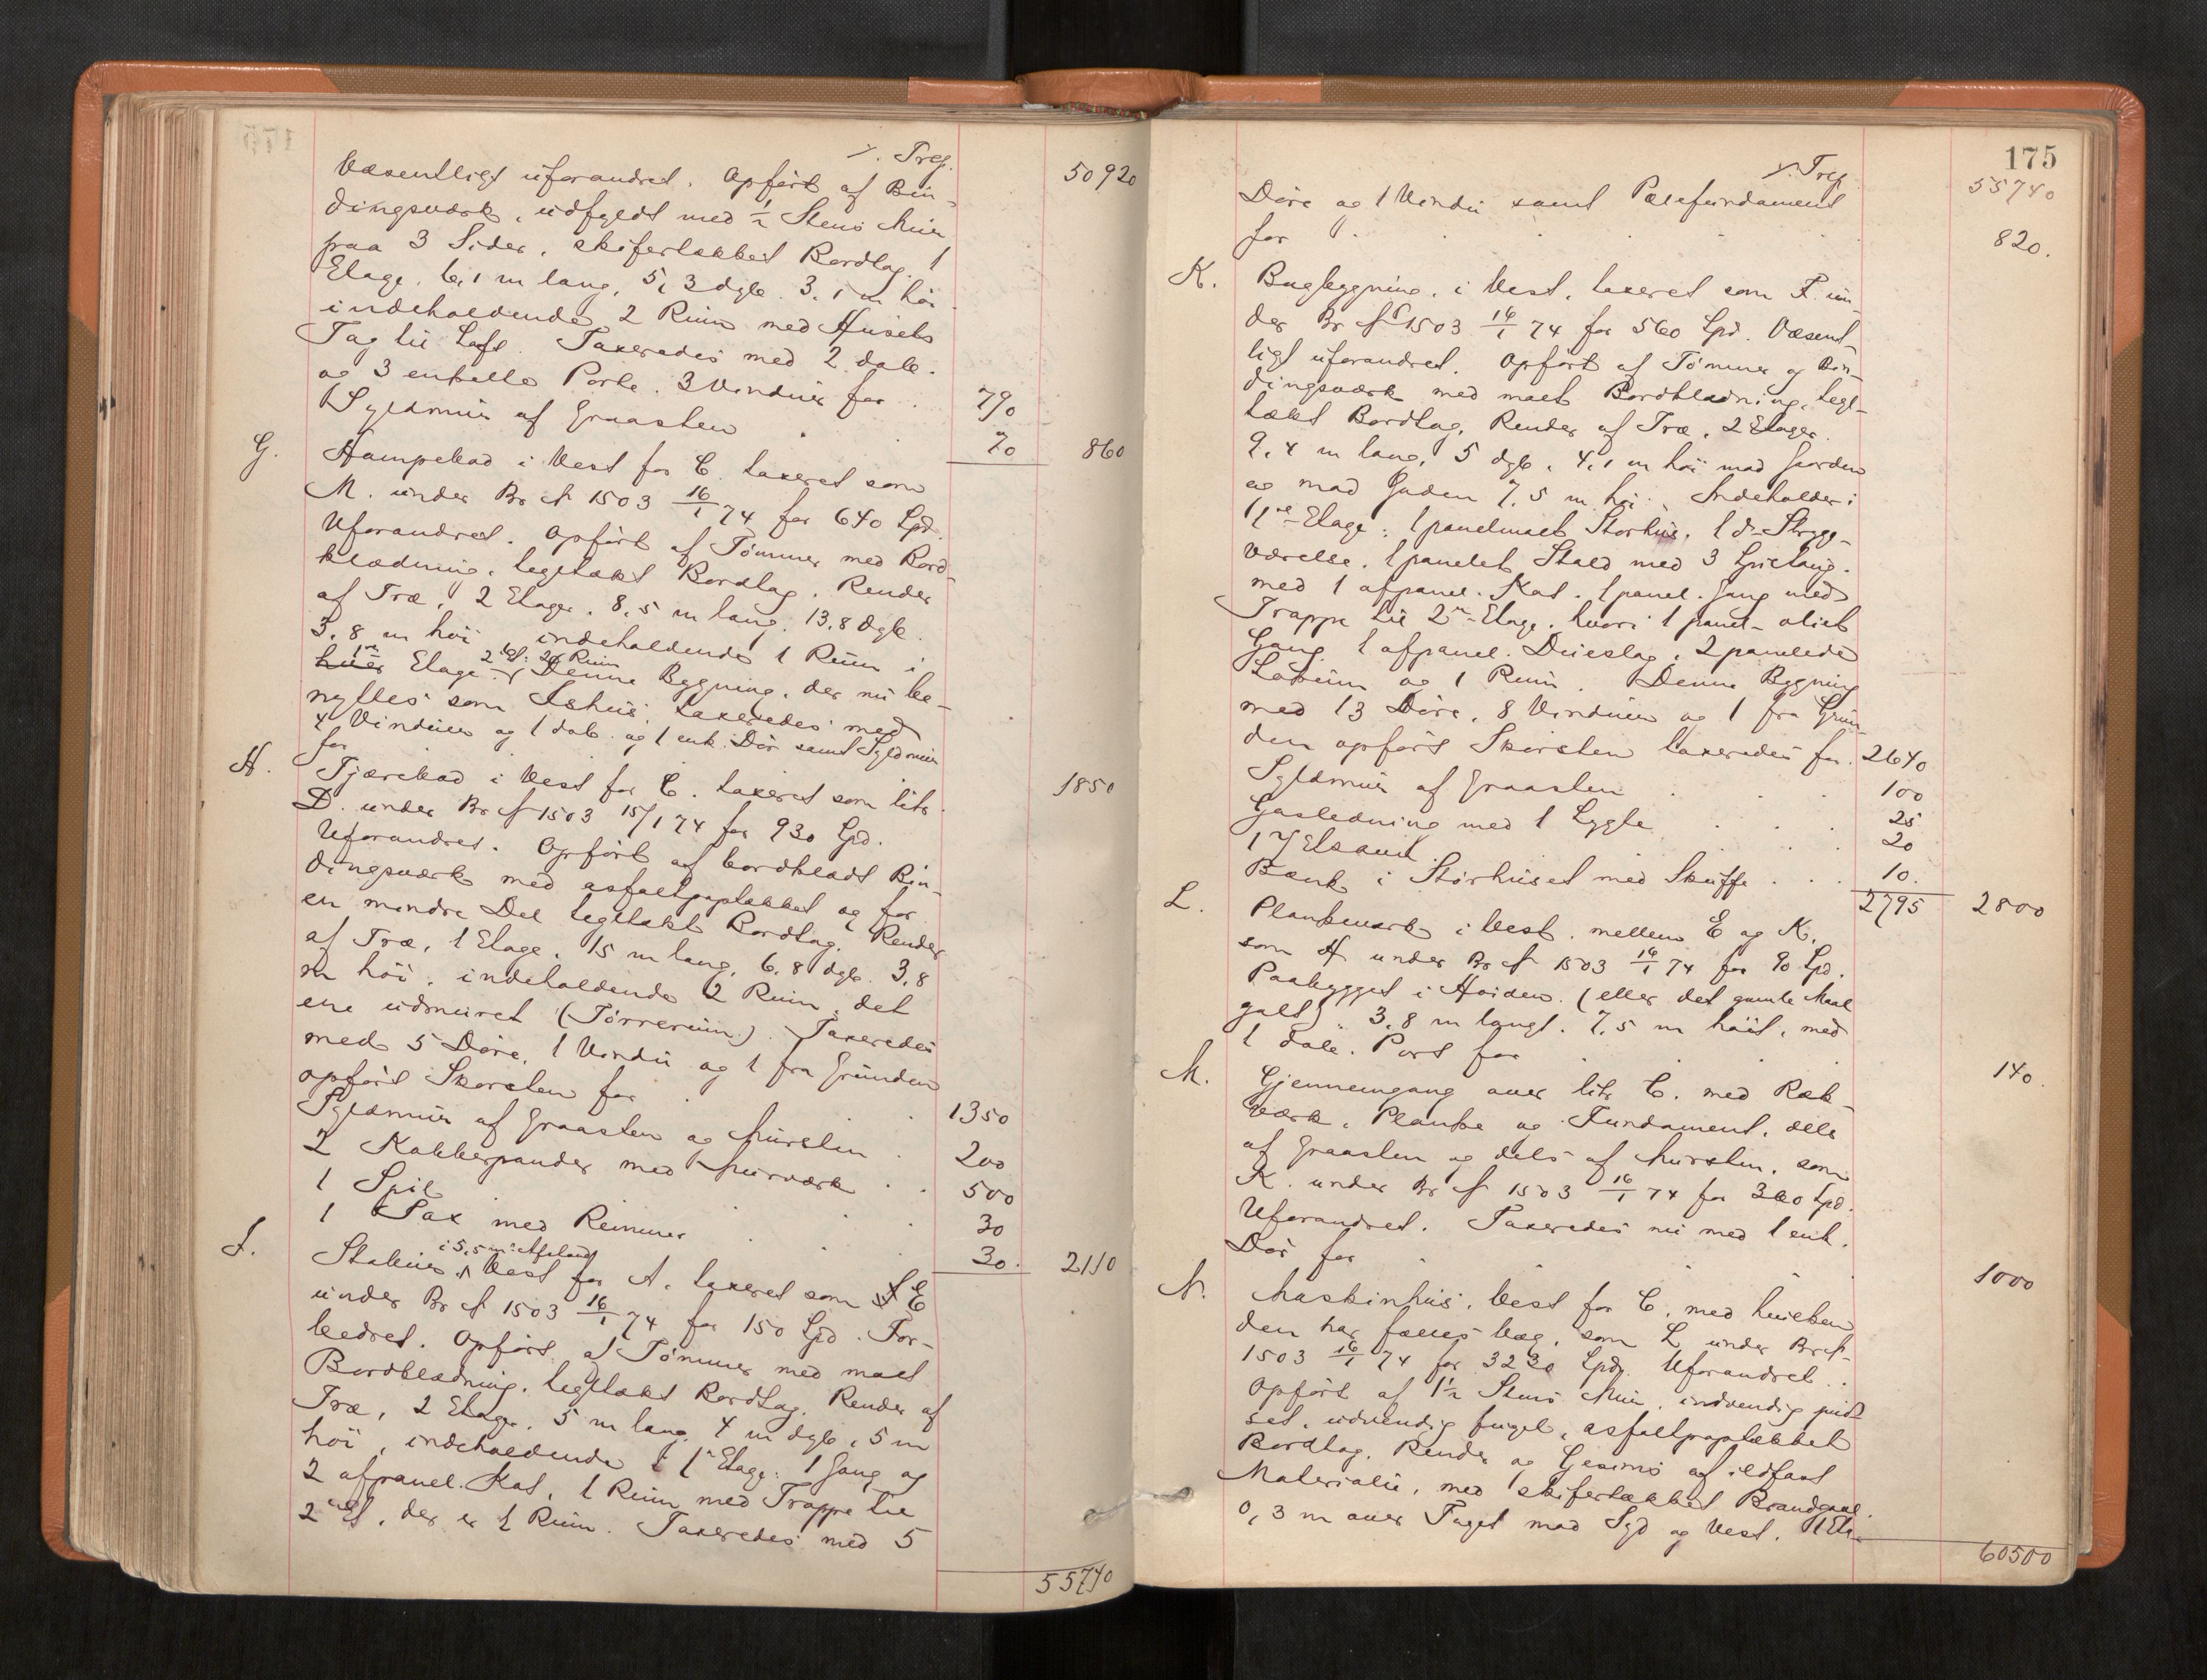 175
Trsp. 50920
Væsentligt uforandret. Opført af Bin-
dingsværk, udfyldt med ½ Stens Mur
paa 3 Sider, skifertækket Bordtag. 1
Etage, 6,1 m lang, 5,3 dyb. 3,1 m høi
indeholdende 2 Rum med Husets
Tag til Loft. Taxeredes med 2 dobb.
og 3 enkelte Porte. 3 Vinduer for . 790
Syldmur af Graasten . . 70 860
G. Hampebod i Vest for C. taxeret som
M. under Br № 1503 16/1 74 for 640 Spd.
Uforandret. Opført af Tømmer med Bord-
klædning, tegltækt Bordtag, Render
af Træ, 2 Etager. 8,5 m lang. 13,8 dyb.
3,8 m høi, indeholdende 1 Rum i
1ste 2 Et: 2 Rum
hver Etage. Denne Bygning, der nu be-
nyttes som Ishus, taxeredes med
4 Vinduer og 1 dob. og 1 enk. Dør samt Syldmur
for 1850
H. Tjærebod i Vest for C. taxeret som litr.
D. under Br № 1503 15/1 74 for 930 Spd.
Uforandret. Opført af bordklædt Bin-
dingsværk med asfaltpaptækket og for
en mindre Del tegltækt Bordtag. Render
af Træ, 1 Etage, 15 m lang, 6,8 dyb. 3,8
m høi, indeholdende 2 Rum, det
ene udmuret (Tørrerum). Taxeredes
med 5 Døre, 1 Vindu og 1 fra Grunden
opført Skorsten for . 1350
Syldmur af Graasten og Mursten . 200
2 Kobberpander med Murværk . . 500
1 Spil . . . 30
1 Sax med Remmer . . . 30. 2110
i 5,5 m: Afstand
I. Stabur, Vest for A. taxeret som E
under Br № 1503 16/1 74 for 150 Spd. For-
bedret. Opført af Tømmer med malt
Bordklædning, tegltækt Bordtag, Render af
Træ, 2 Etager, 5 m lang, 4 m dyb, 5 m
høi, indeholdende i 1ste Etage: 1 Gang og
2 afpanel. Kot, 1 Rum med Trappe til
2den Et, der er 1 Rum. Taxeredes med 5
55740
175
Trsp. 55740
Døre og 1 Vindu samt Pælefundament
for . . . . . 820.
K. Bagbygning, i Vest, taxeret som F. un-
der Br № 1503 16/1 74 for 560 Spd. Væsent-
ligt uforandret. Opført af Tømmer og Bin-
dingsværk med malt Bordklædning, tegl-
tækt Bordtag, Render af Træ, 2 Etager.
9,4 m lang, 5 dyb, 4,1 m høi mod Gaarden
og mod Gaden 7,5 m høi. Indeholder i
1ste Etage: 1 panelmalt Storhus, 1 do Stryge-
værelse, 1 panelet Stald med 3 Spiltaug.
med 1 afpanel. Kot. 1 panel. Gang med
Trappe til 2den Etage, hvori 1 panel- oliet
Gang. 1 afpanel. Dueslag, 2 panelede
Loftrum og 1 Rum. Denne Bygning
med 13 Døre, 8 Vinduer og 1 fra Grun-
den opført Skorsten taxeredes for . 2640
Syldmur af Graasten . . . 100
Gasledning med 1 Lygte . . . 25
1 . . . 20
Bænk i Storhuset med Skuffe . . . 10.
2795 2800
L. Plankeværk i Vest, mellem E og K.
som H under Br № 1503 16/1 74 for 90 Spd.
Paabygget i Høiden. (eller det gamle Maal
galt). 3,8 m langt. 7,5 m høit, med
1 dob. Port for . . . . 140.
M. Gjennemgang over litr C. med Ræk-
værk, Planke og Fundament, dels
af Graasten og dels af Mursten, som
K. under Br № 1503 16/1 74 for 300 Spd.
Uforandret. Taxeredes nu med 1 enk.
Dør for . . . . 1000
N. Maskinhus, Vest for C, med hvilken
den har fælles Væg, som L under Br №
1503 16/1 74 for 3230 Spd. Uforandret.
Opført af 1½ Stens Mur, indvendig pud-
set, udvendig fuget, asfaltpaptækket
Bordtag. Render og Gesims af ildfast
Materiale, med skifertækket Brandgavl
0,3 m over Taget mod Syd og Vest. 1 Eta-
60500